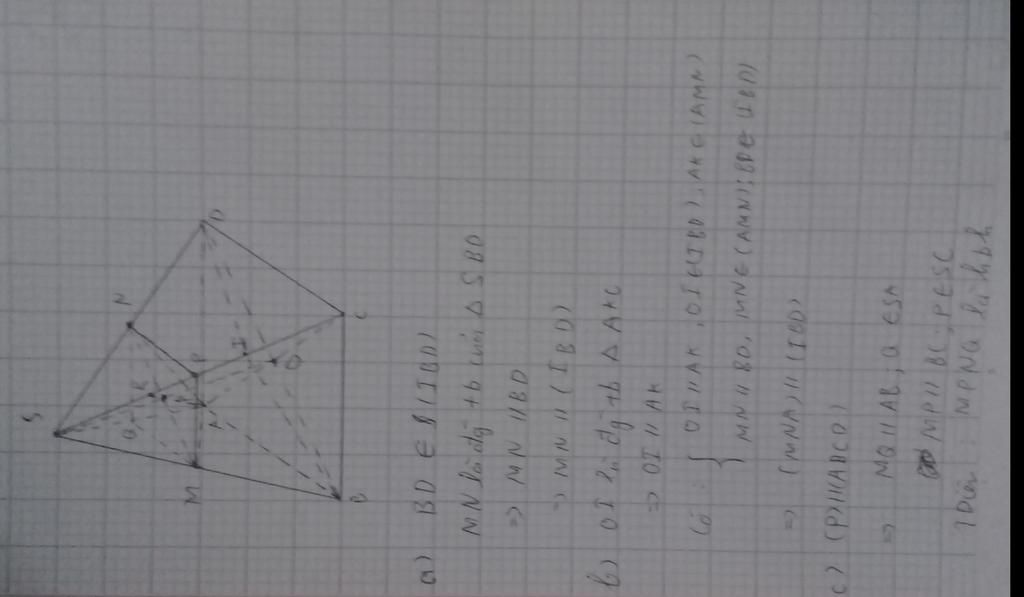 S
N
M
Q
K
P
A
I
O
D
B
C
a) BD ∈ (IBD)
MN là đg tb của Δ SBD
=> MN // BD
=> MN // (IBD)
b) OI là đg tb Δ AKC
=> OI // AK
Có : { OI // AK , OI ∈ (IBD) , AK ∈ (AMN)
MN // BD , MN ∈ (AMN) ; BD ∈ (IBD)
=> (MNA) // (IBD)
c) (P) // (ABCD)
=> MQ // AB ; Q ∈ SA
MP // BC ; P ∈ SC
: MPNQ là hbh